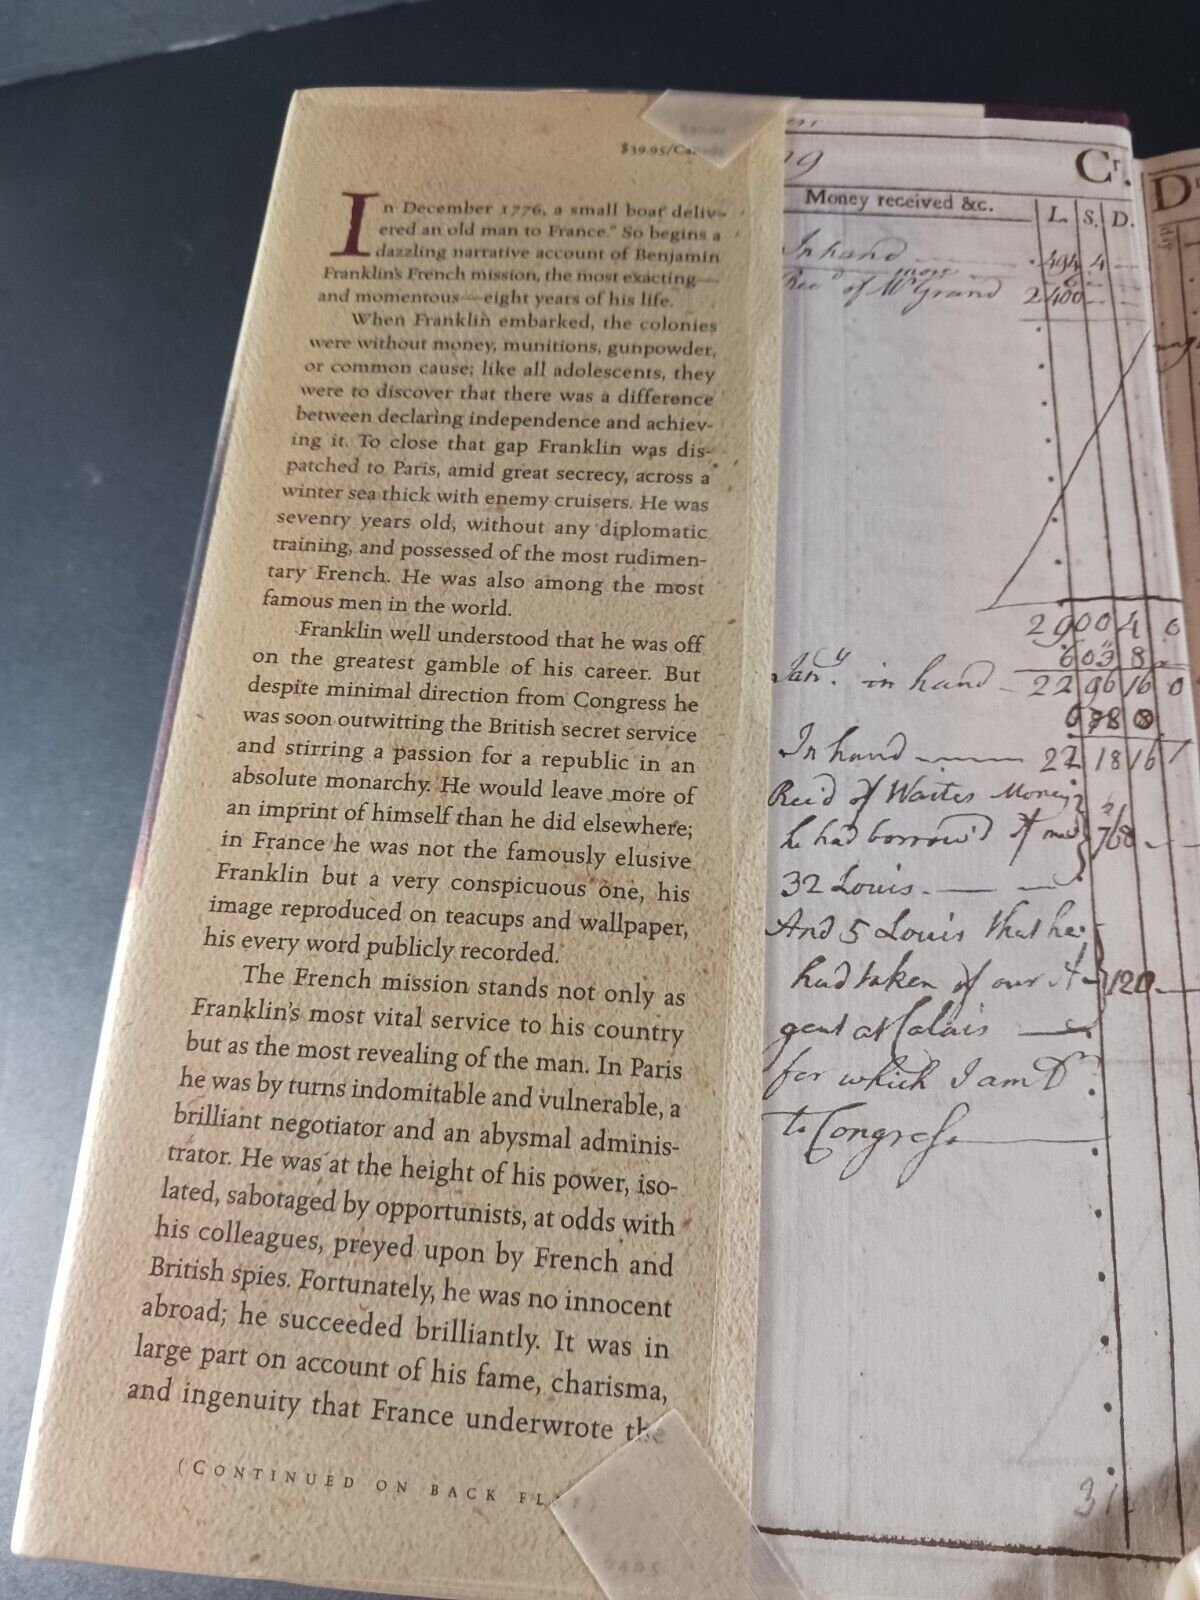 $39.95/Canada
In December 1776, a small boat deliv-
ered an old man to France." So begins a
dazzling narrative account of Benjamin
Franklin's French mission, the most exacting—
and momentous—eight years of his life.
When Franklin embarked, the colonies
were without money, munitions, gunpowder,
or common cause; like all adolescents, they
were to discover that there was a difference
between declaring independence and achiev-
ing it. To close that gap Franklin was dis-
patched to Paris, amid great secrecy, across a
winter sea thick with enemy cruisers. He was
seventy years old, without any diplomatic
training, and possessed of the most rudimen-
tary French. He was also among the most
famous men in the world.
Franklin well understood that he was off
on the greatest gamble of his career. But
despite minimal direction from Congress he
was soon outwitting the British secret service
and stirring a passion for a republic in an
absolute monarchy. He would leave more of
an imprint of himself than he did elsewhere;
in France he was not the famously elusive
Franklin but a very conspicuous one, his
image reproduced on teacups and wallpaper,
his every word publicly recorded.
The French mission stands not only as
Franklin's most vital service to his country
but as the most revealing of the man. In Paris
he was by turns indomitable and vulnerable, a
brilliant negotiator and an abysmal adminis-
trator. He was at the height of his power, iso-
lated, sabotaged by opportunists, at odds with
his colleagues, preyed upon by French and
British spies. Fortunately, he was no innocent
abroad; he succeeded brilliantly. It was in
large part on account of his fame, charisma,
and ingenuity that France underwrote the
(CONTINUED ON BACK FLAP)
0405
Cr.
Money received &c. L. S. D.
In hand 494 4
more
Rec'd of Mr Grand 2400
2900 4 0
603 8
Jany. in hand 2296 16 0
In hand 2218 16 1
Rec'd of Waites Money
he had borrow'd of me 768
32 Louis
And 5 Louis that he
had taken of our A- 120
gent at Calais
for which I am Dr.
to Congress
Dr